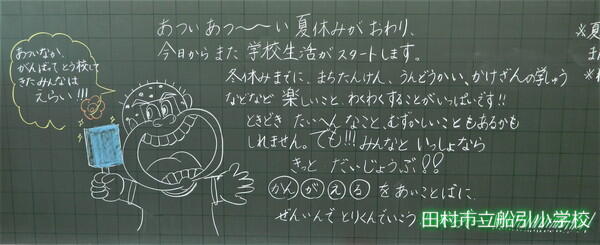 あついなか、
がんばってとう校して
きたみんなは
えらい!!!
あつい あつ〜〜い 夏休みが おわり、
今日からまた 学校生活が スタートします。
冬休みまでに、まちたんけん、うんどうかい、かけざんの学しゅう
などなど 楽しいこと、わくわくすることがいっぱいです!!
ときどき たい〜んなこと、むずかしいこともあるかも
しれません。でも!!! みんなと いっしょなら
きっと だいじょうぶ!!
かんがえる をあいことばに、
ぜんいんで とりくんでいこう
※夏
※
田村市立船引小学校